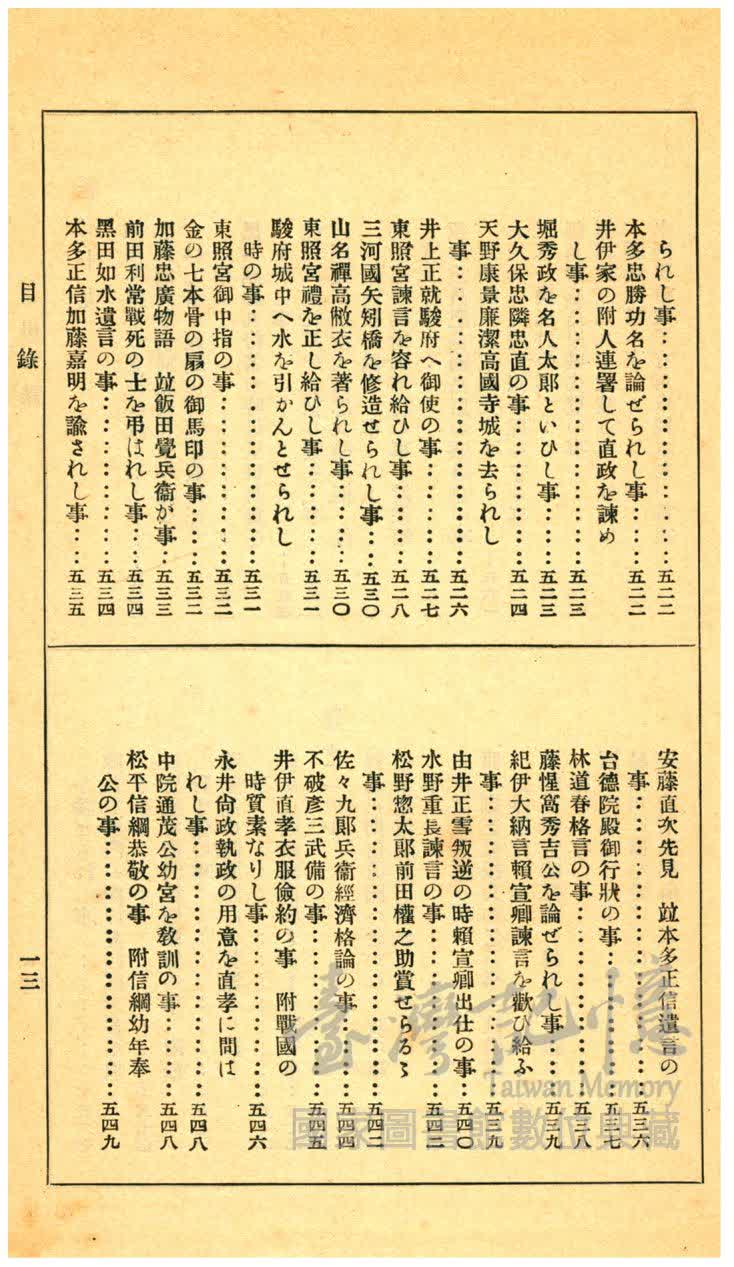 られし事‥‥‥‥‥‥‥‥‥五二二
本多忠勝功名を論ぜられし事‥‥五二二
井伊家の附人連署して直政を諫め
し事‥‥‥‥‥‥‥‥‥‥五二三
堀秀政を名人太郞といひし事‥‥五二三
大久保忠隣忠直の事‥‥‥‥‥五二四
天野康景廉潔高國寺城を去られし
事‥‥‥‥‥‥‥‥‥‥‥五二六
井上正就駿府へ御使の事‥‥‥五二七
東照宮諫言を容れ給ひし事‥‥五二八
三河國矢矧橋を修造せられし事‥五三〇
山名禪高敝衣を著られし事‥‥五三〇
東照宮禮を正し給ひし事‥‥‥五三一
駿府城中へ水を引かんとせられし
時の事‥‥‥‥‥‥‥‥‥五三一
東照宮御中指の事‥‥‥‥‥五三二
金の七本骨の扇の御馬印の事‥五三二
加藤忠廣物語　竝飯田覺兵衞が事‥五三三
前田利常戰死の士を弔はれし事‥五三四
黑田如水遺言の事‥‥‥‥‥五三四
本多正信加藤嘉明を諭されし事‥五三五
安藤直次先見　竝本多正信遺言の
事‥‥‥‥‥‥‥‥‥‥‥五三六
台德院殿御行狀の事‥‥‥‥五三七
林道春格言の事‥‥‥‥‥‥五三八
藤惺窩秀吉公を論ぜられし事‥五三九
紀伊大納言賴宣卿諫言を歡び給ふ
事‥‥‥‥‥‥‥‥‥‥‥五三九
由井正雪叛逆の時賴宣卿出仕の事‥五四〇
水野重長諫言の事‥‥‥‥‥五四二
松野惣太郞前田權之助賞せらるゝ
事‥‥‥‥‥‥‥‥‥‥‥五四二
佐々九郞兵衞經濟格論の事‥‥五四四
不破彥三武備の事‥‥‥‥‥五四五
井伊直孝衣服儉約の事　附戰國の
時質素なりし事‥‥‥‥‥‥五四六
永井尙政執政の用意を直孝に問は
れし事‥‥‥‥‥‥‥‥‥五四八
中院通茂公幼宮を敎訓の事‥‥五四八
松平信綱恭敬の事　附信綱幼年奉
公の事‥‥‥‥‥‥‥‥‥五四九
目錄
一三
臺灣記憶
Taiwan Memory
國家圖書館數位典藏